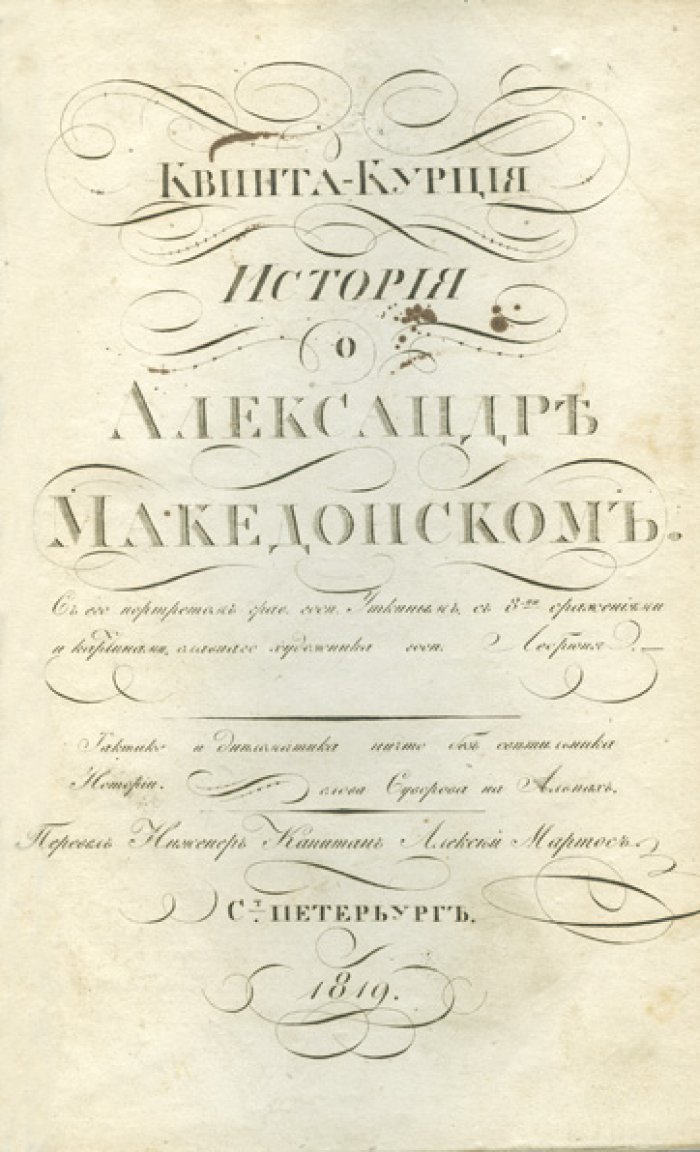 Квинта-Курція
Исторія
о
Александрѣ
Македонскомъ.
Съ его портретомъ грав. госп. Уткинымъ, съ 3-мя сраженіями
и картинами, славнаго художника госп.
Тактика и дипломатика ничто безъ свѣтильника
Исторіи. слова Суворова на Альпахъ.
Перевелъ Инженеръ Капитанъ Алексѣй Мартосъ
С.т Петербургъ.
1819.